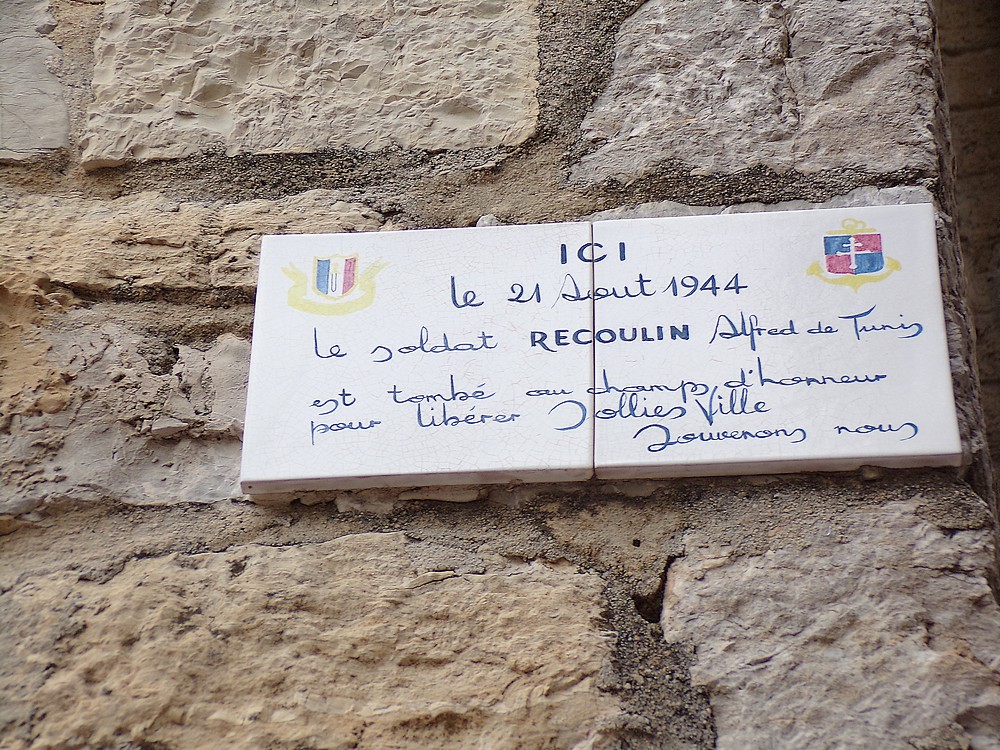 ICI
le 21 Aout 1944
le soldat RECOULIN Alfred de Tunis
est tombé au champs d'honneur
pour libérer Sollies Ville
Souvenons nous